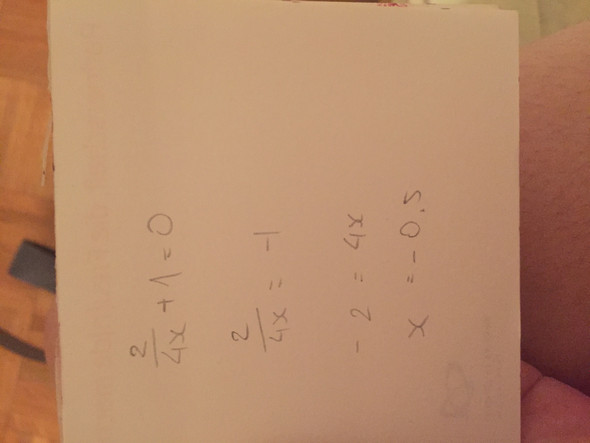 2/4x + 1 = 0
2/4x = -1
- 2 = 4x
x = -0,5